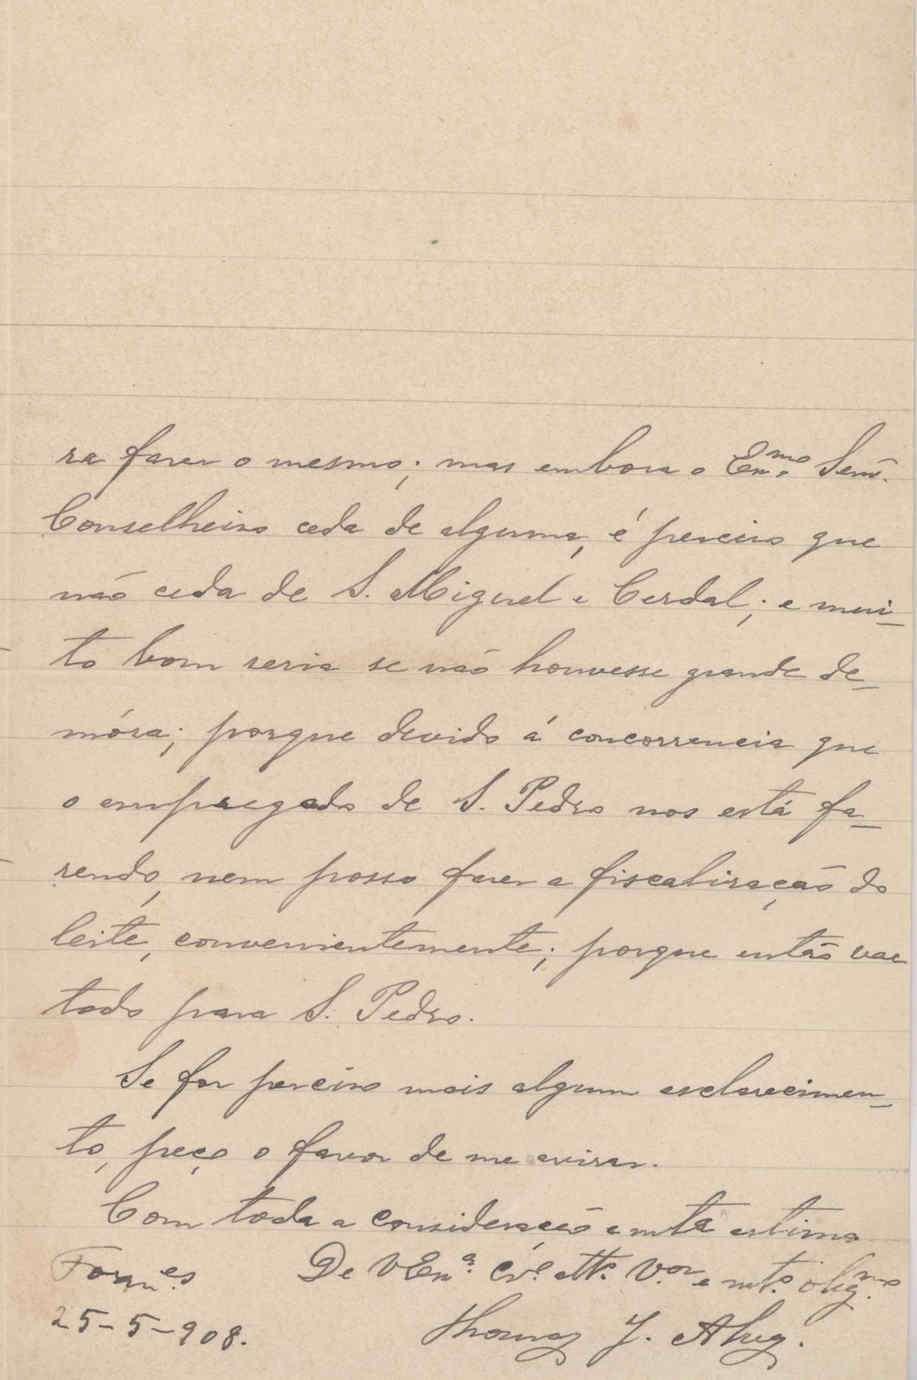 ra fazer o mesmo; mas embora o Exmo. Senr.
Conselheiro ceda de alguma, é preciso que
não ceda de S. Miguel e Cerdal; e mui-
to bom seria se não houvesse grande de-
móra; porque devido á concorrencia que
o empregado de S. Pedro nos está fa-
zendo, nem posso fazer a fiscalização do
leite, convenientemente; porque então vae
todo para S. Pedro.
Se for preciso mais algum esclarecimen-
to, peço o favor de me avisar.
Com toda a consideração e mta estima
Fornes. De V Exª. Cr.º att.º V.or e mt.º obig.mo
25-5-908. Thomaz J. Alvz.